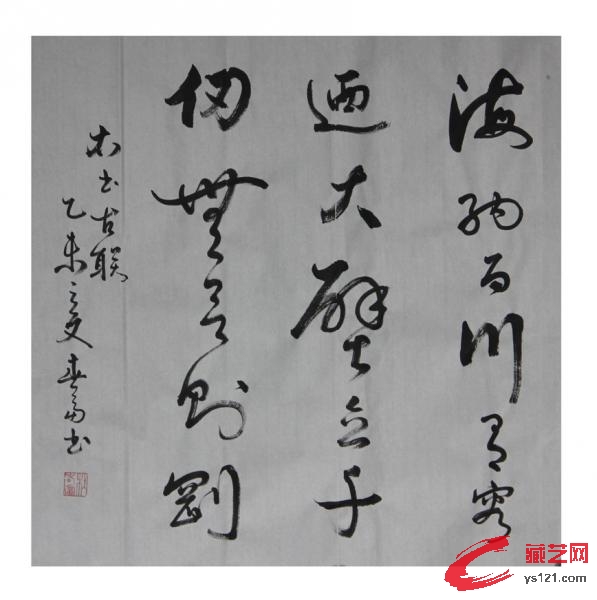 海纳百川有容
迺大壁立千
仞無欲则剛
古联
乙未之夏春富书
藏艺网
ys121.com